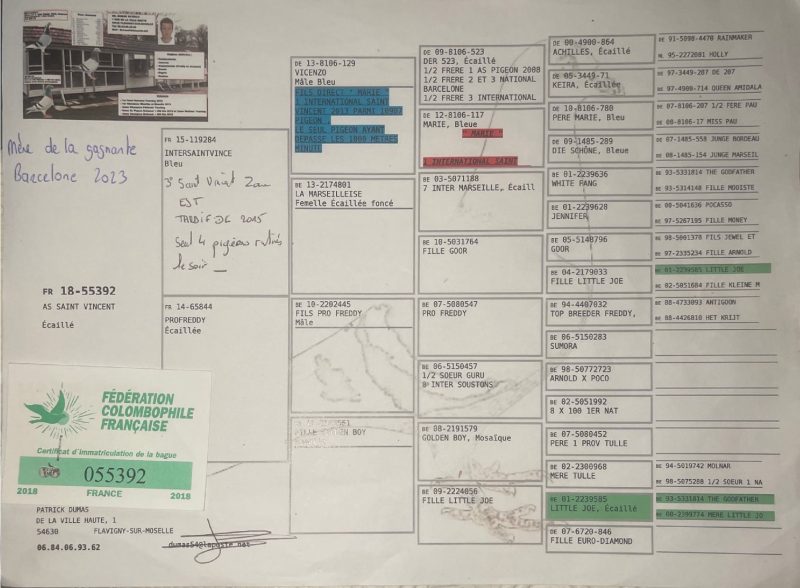 Mère de la gagnante
Barcelone 2023
FR 18-55392
AS SAINT VINCENT
Écaillé
FÉDÉRATION
COLOMBOPHILE
FRANÇAISE
Certificat d'immatriculation de la bague
055392
2018 FRANCE 2018
PATRICK DUMAS
DE LA VILLE HAUTE, 1
54630 FLAVIGNY-SUR-MOSELLE
06.84.06.93.62
dumas54@laposte.net
FR 15-119284
INTERSAINTVINCE
Bleu
3e Saint Vincent Zone
EST
TARDIF DE 2015
Seul 4 pigeons
le soir
FR 14-65844
PROFREDDY
Écaillée
BE 13-8106-129
VICENZO
Mâle Bleu
FILS DIRECT " MARIE "
1 INTERNATIONAL SAINT
VINCENT 2013 PARMI 10907
PIGEON
LE SEUL PIGEON AYANT
DEPASSE LES 1000 METRES
MINUTE
BE 13-2174801
LA MARSEILLEISE
Femelle Écaillée foncé
BE 10-2202445
FILS PRO FREDDY
Mâle
BE
FILLE GOLDEN BOY
BE 09-8106-523
DER 523, Écaillé
1/2 FRERE 1 AS PIGEON 2008
1/2 FRERE 2 ET 3 NATIONAL
BARCELONE
1/2 FRERE 3 INTERNATIONAL
BE 12-8106-117
MARIE, Bleue
" MARIE "
1 INTERNATIONAL SAINT
BE 03-5071188
7 INTER MARSEILLE, Écaill
BE 10-5031764
FILLE GOOR
BE 07-5080547
PRO FREDDY
BE 06-5150457
1/2 SOEUR GURU
8 INTER SOUSTONS
BE 08-2191579
GOLDEN BOY, Mosaïque
BE 09-2224056
FILLE LITTLE JOE
BE 00-4900-864
ACHILLES, Écaillé
BE 05-3449-71
KEIRA, Écaillée
BE 10-8106-780
PERE MARIE, Bleu
BE 09-1485-289
DIE SCHÖNE, Bleue
BE 01-2239636
WHITE FANG
BE 01-2239628
JENNIFER
BE 05-5148796
GOOR
BE 04-2179033
FILLE LITTLE JOE
BE 94-4407032
TOP BREEDER FREDDY,
BE 06-5150283
SUMORA
BE 98-50772723
ARNOLD X POCO
BE 02-5051992
8 X 100 1ER NAT
BE 07-5080452
PERE 1 PROV TULLE
BE 02-2300968
MERE TULLE
BE 01-2239585
LITTLE JOE, Écaillé
BE 07-6720-846
FILLE EURO-DIAMOND
BE 91-5098-4470 RAINMAKER
NL 95-2272081 HOLLY
BE 97-3449-207 DE 207
BE 97-4900-714 QUEEN AMIDALA
BE 07-8106-207 1/2 FERE PAU
BE 08-8106-17 MISS PAU
BE 07-1485-558 JUNGE BORDEAU
BE 08-1485-154 JUNGE MARSEIL
BE 93-5331814 THE GODFATHER
BE 93-5314148 FILLE MOOISTE
BE 00-5041636 POCASSO
BE 97-5267195 FILLE MONEY
BE 98-5001378 FILS JEWEL ET
BE 97-2335234 FILLE ARNOLD
BE 01-2239585 LITTLE JOE
BE 02-5051684 FILLE KLEINE M
BE 88-4733093 ANTIGOON
BE 88-4426810 HET KRIJT
BE 94-5019742 MOLNAR
BE 98-5075288 1/2 SOEUR 1 NA
BE 93-5331814 THE GODFATHER
BE 00-2399774 MERE LITTLE JO